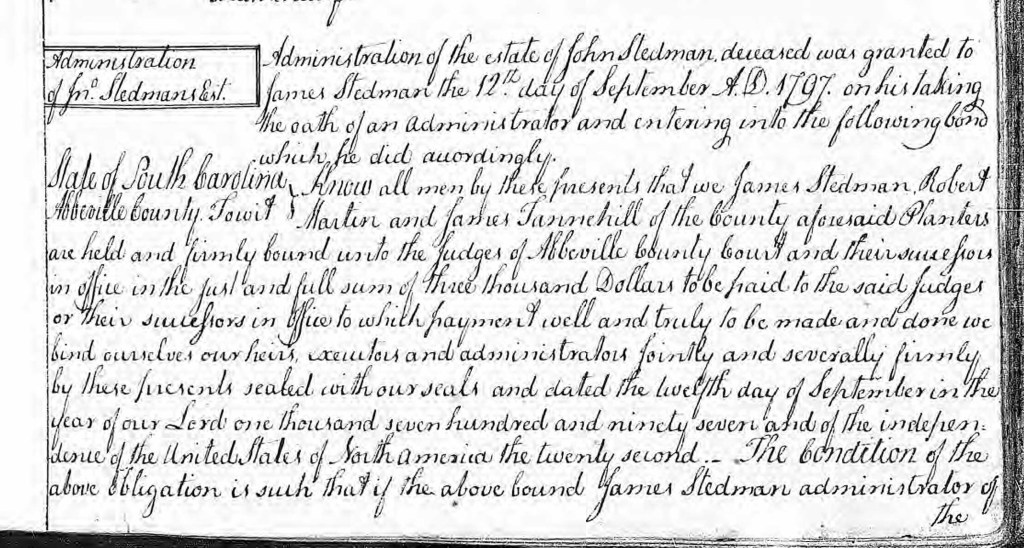 Administration
of Jno. Stedmans Est.
Administration of the estate of John Stedman, deceased was granted to
James Stedman the 12th day of September A.D. 1797. on his taking
the oath of an administrator and entering into the following bond
which he did accordingly.
State of South Carolina
Abbeville County. Towit
Know all men by these presents that we James Stedman, Robert
Martin and James Tannehill of the County aforesaid Planters
are held and firmly bound unto the Judges of Abbeville County Court and their successors
in office in the just and full sum of three thousand Dollars to be paid to the said Judges
or their successors in office to which payment well and truly to be made and done we
bind ourselves our heirs, executors and administrators jointly and severally firmly
by these presents sealed with our seals and dated the twelfth day of September in the
year of our Lord one thousand seven hundred and ninety seven and of the indepen:
dence of the United States of North america the twenty second._ The Condition of the
above obligation is such that if the above bound James Stedman administrator of
the